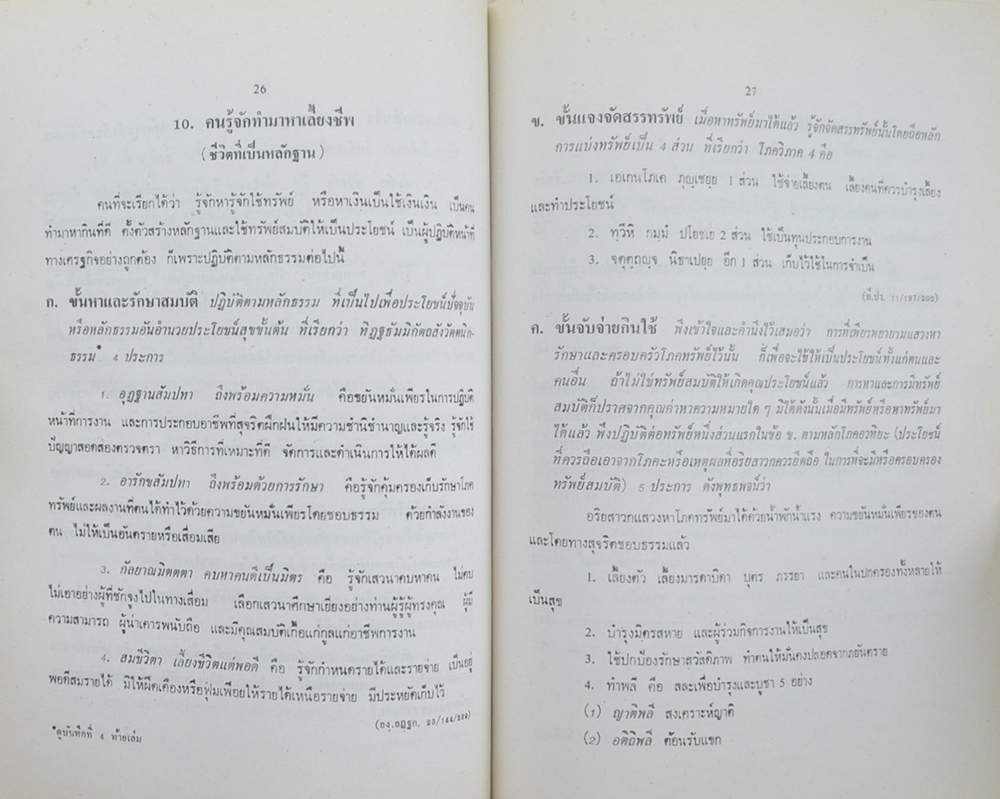 26
10. คนรู้จักทำมาหาเลี้ยงชีพ
(ชีวิตที่เป็นหลักฐาน)
คนที่จะเรียกได้ว่า รู้จักหารู้จักใช้ทรัพย์ หรือหาเงินเป็นใช้เงินเป็น เป็นคน
ทำมาหากินที่ดี ตั้งตัวสร้างหลักฐานและใช้ทรัพย์สมบัติให้เป็นประโยชน์ เป็นผู้ปฏิบัติหน้าที่
ทางเศรษฐกิจอย่างถูกต้อง ก็เพราะปฏิบัติตามหลักธรรมต่อไปนี้
ก. ขั้นหาและรักษาสมบัติ ปฏิบัติตามหลักธรรม ที่เป็นไปเพื่อประโยชน์ปัจจุบัน
หรือหลักธรรมอันอำนวยประโยชน์สุขขั้นต้น ที่เรียกว่า ทิฏฐธัมมิกัตถสังวัตตนิก-
ธรรม* 4 ประการ
1. อุฏฐานสัมปทา ถึงพร้อมความหมั่น คือขยันหมั่นเพียรในการปฏิบัติ
หน้าที่การงาน และการประกอบอาชีพที่สุจริตฝึกฝนให้มีความชำนิชำนาญและรู้จริง รู้จักใช้
ปัญญาสอดส่องตรวจตรา หาวิธีการที่เหมาะที่ดี จัดการและดำเนินการให้ได้ผลดี
2. อารักขสัมปทา ถึงพร้อมด้วยการรักษา คือรู้จักคุ้มครองเก็บรักษาโภค
ทรัพย์และผลงานที่ตนได้ทำไว้ด้วยความขยันหมั่นเพียรโดยชอบธรรม ด้วยกำลังงานของ
ตน ไม่ให้เป็นอันตรายหรือเสื่อมเสีย
3. กัลยาณมิตตตา คบหาคนดีเป็นมิตร คือ รู้จักเสวนาคบหาคน ไม่คบ
ไม่เอาอย่างผู้ที่ชักจูงไปในทางเสื่อม เลือกเสวนาศึกษาเยี่ยงอย่างท่านผู้รู้ผู้ทรงคุณ ผู้มี
ความสามารถ ผู้น่าเคารพนับถือ และมีคุณสมบัติเกื้อแก่กูลแก่อาชีพการงาน
4. สมชีวิตา เลี้ยงชีวิตแต่พอดี คือ รู้จักกำหนดรายได้และรายจ่าย เป็นอยู่
พอดีสมรายได้ มิให้ฝืดเคืองหรือฟุ่มเฟือยให้รายได้เหนือรายจ่าย มีประหยัดเก็บไว้
(องฺ.อฏฺฐก. 23/144/289)
*ดูบันทึกที่ 4 ท้ายเล่ม
27
ข. ขั้นแจงจัดสรรทรัพย์ เมื่อหาทรัพย์มาได้แล้ว รู้จักจัดสรรทรัพย์นั้นโดยถือหลัก
การแบ่งทรัพย์เป็น 4 ส่วน ที่เรียกว่า โภควิภาค 4 คือ
1. เอเกน โภเค ภุญฺเชยฺย 1 ส่วน ใช้จ่ายเลี้ยงตน เลี้ยงคนที่ควรบำรุงเลี้ยง
และทำประโยชน์
2. ทฺวีหิ กมฺมํ ปโยชเย 2 ส่วน ใช้เป็นทุนประกอบการงาน
3. จตุตฺถญฺจ นิธาเปยฺย อีก 1 ส่วน เก็บไว้ใช้ในการจำเป็น
(ที.ปา. 11/197/202)
ค. ขั้นจับจ่ายกินใช้ พึงเข้าใจและคำนึงไว้เสมอว่า การที่เพียรพยายามแสวงหา
รักษาและครอบครัวโภคทรัพย์ไว้นั้น ก็เพื่อจะใช้ให้เป็นประโยชน์ทั้งแก่ตนและ
คนอื่น ถ้าไม่ใช่ทรัพย์สมบัติให้เกิดคุณประโยชน์แล้ว การหาและการมีทรัพย์
สมบัติก็ปราศจากคุณค่าหาความหมายใด ๆ มิได้ดังนั้นเมื่อมีทรัพย์หรือหาทรัพย์มา
ได้แล้ว พึงปฏิบัติต่อทรัพย์หนึ่งส่วนแรกในข้อ ข. ตามหลักโภคอาทิยะ (ประโยชน์
ที่ควรถือเอาจากโภคะหรือเหตุผลที่อริยสาวกควรยึดถือ ในการที่จะมีหรือครอบครอง
ทรัพย์สมบัติ) 5 ประการ ดังพุทธพจน์ว่า
อริยสาวกแสวงหาโภคทรัพย์มาได้ด้วยน้ำพักน้ำแรง ความขยันหมั่นเพียรของตน
และโดยทางสุจริตชอบธรรมแล้ว
1. เลี้ยงตัว เลี้ยงมารดาบิดา บุตร ภรรยา และคนในปกครองทั้งหลายให้
เป็นสุข
2. บำรุงมิตรสหาย และผู้ร่วมกิจการงานให้เป็นสุข
3. ใช้ปกป้องรักษาสวัสดิภาพ ทำตนให้มั่นคงปลอดจากภยันตราย
4. ทำพลี คือ สละเพื่อบำรุงและบูชา 5 อย่าง
(1) ญาติพลี สงเคราะห์ญาติ
(2) อติถิพลี ต้อนรับแขก